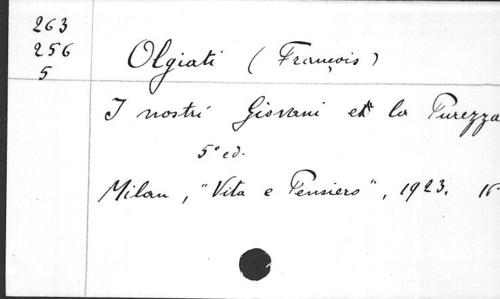 263
256
5
Olgiati (François)
I nostri Giovani et la Purezza
5° ed.
Milan, "Vita e Pensiero", 1923.